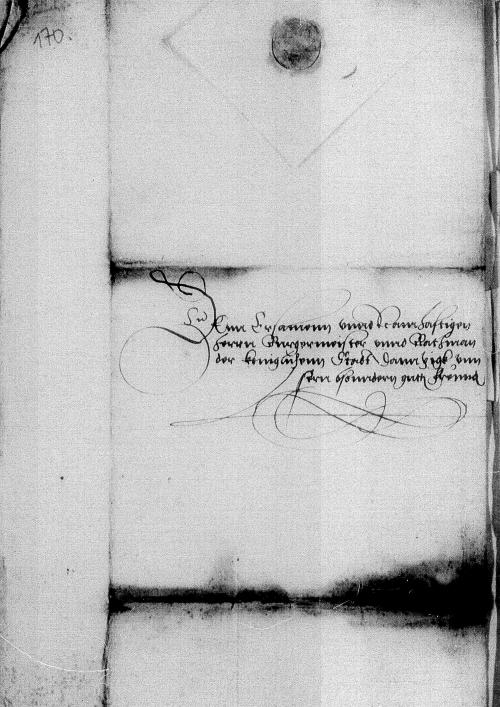 170.
Den Ersamenn vnnd Namhafftigen
herrn Burgermeister vnnd Rathman
der königlichenn Stadt Danntzigk vnn
sern besonndern gutten freund